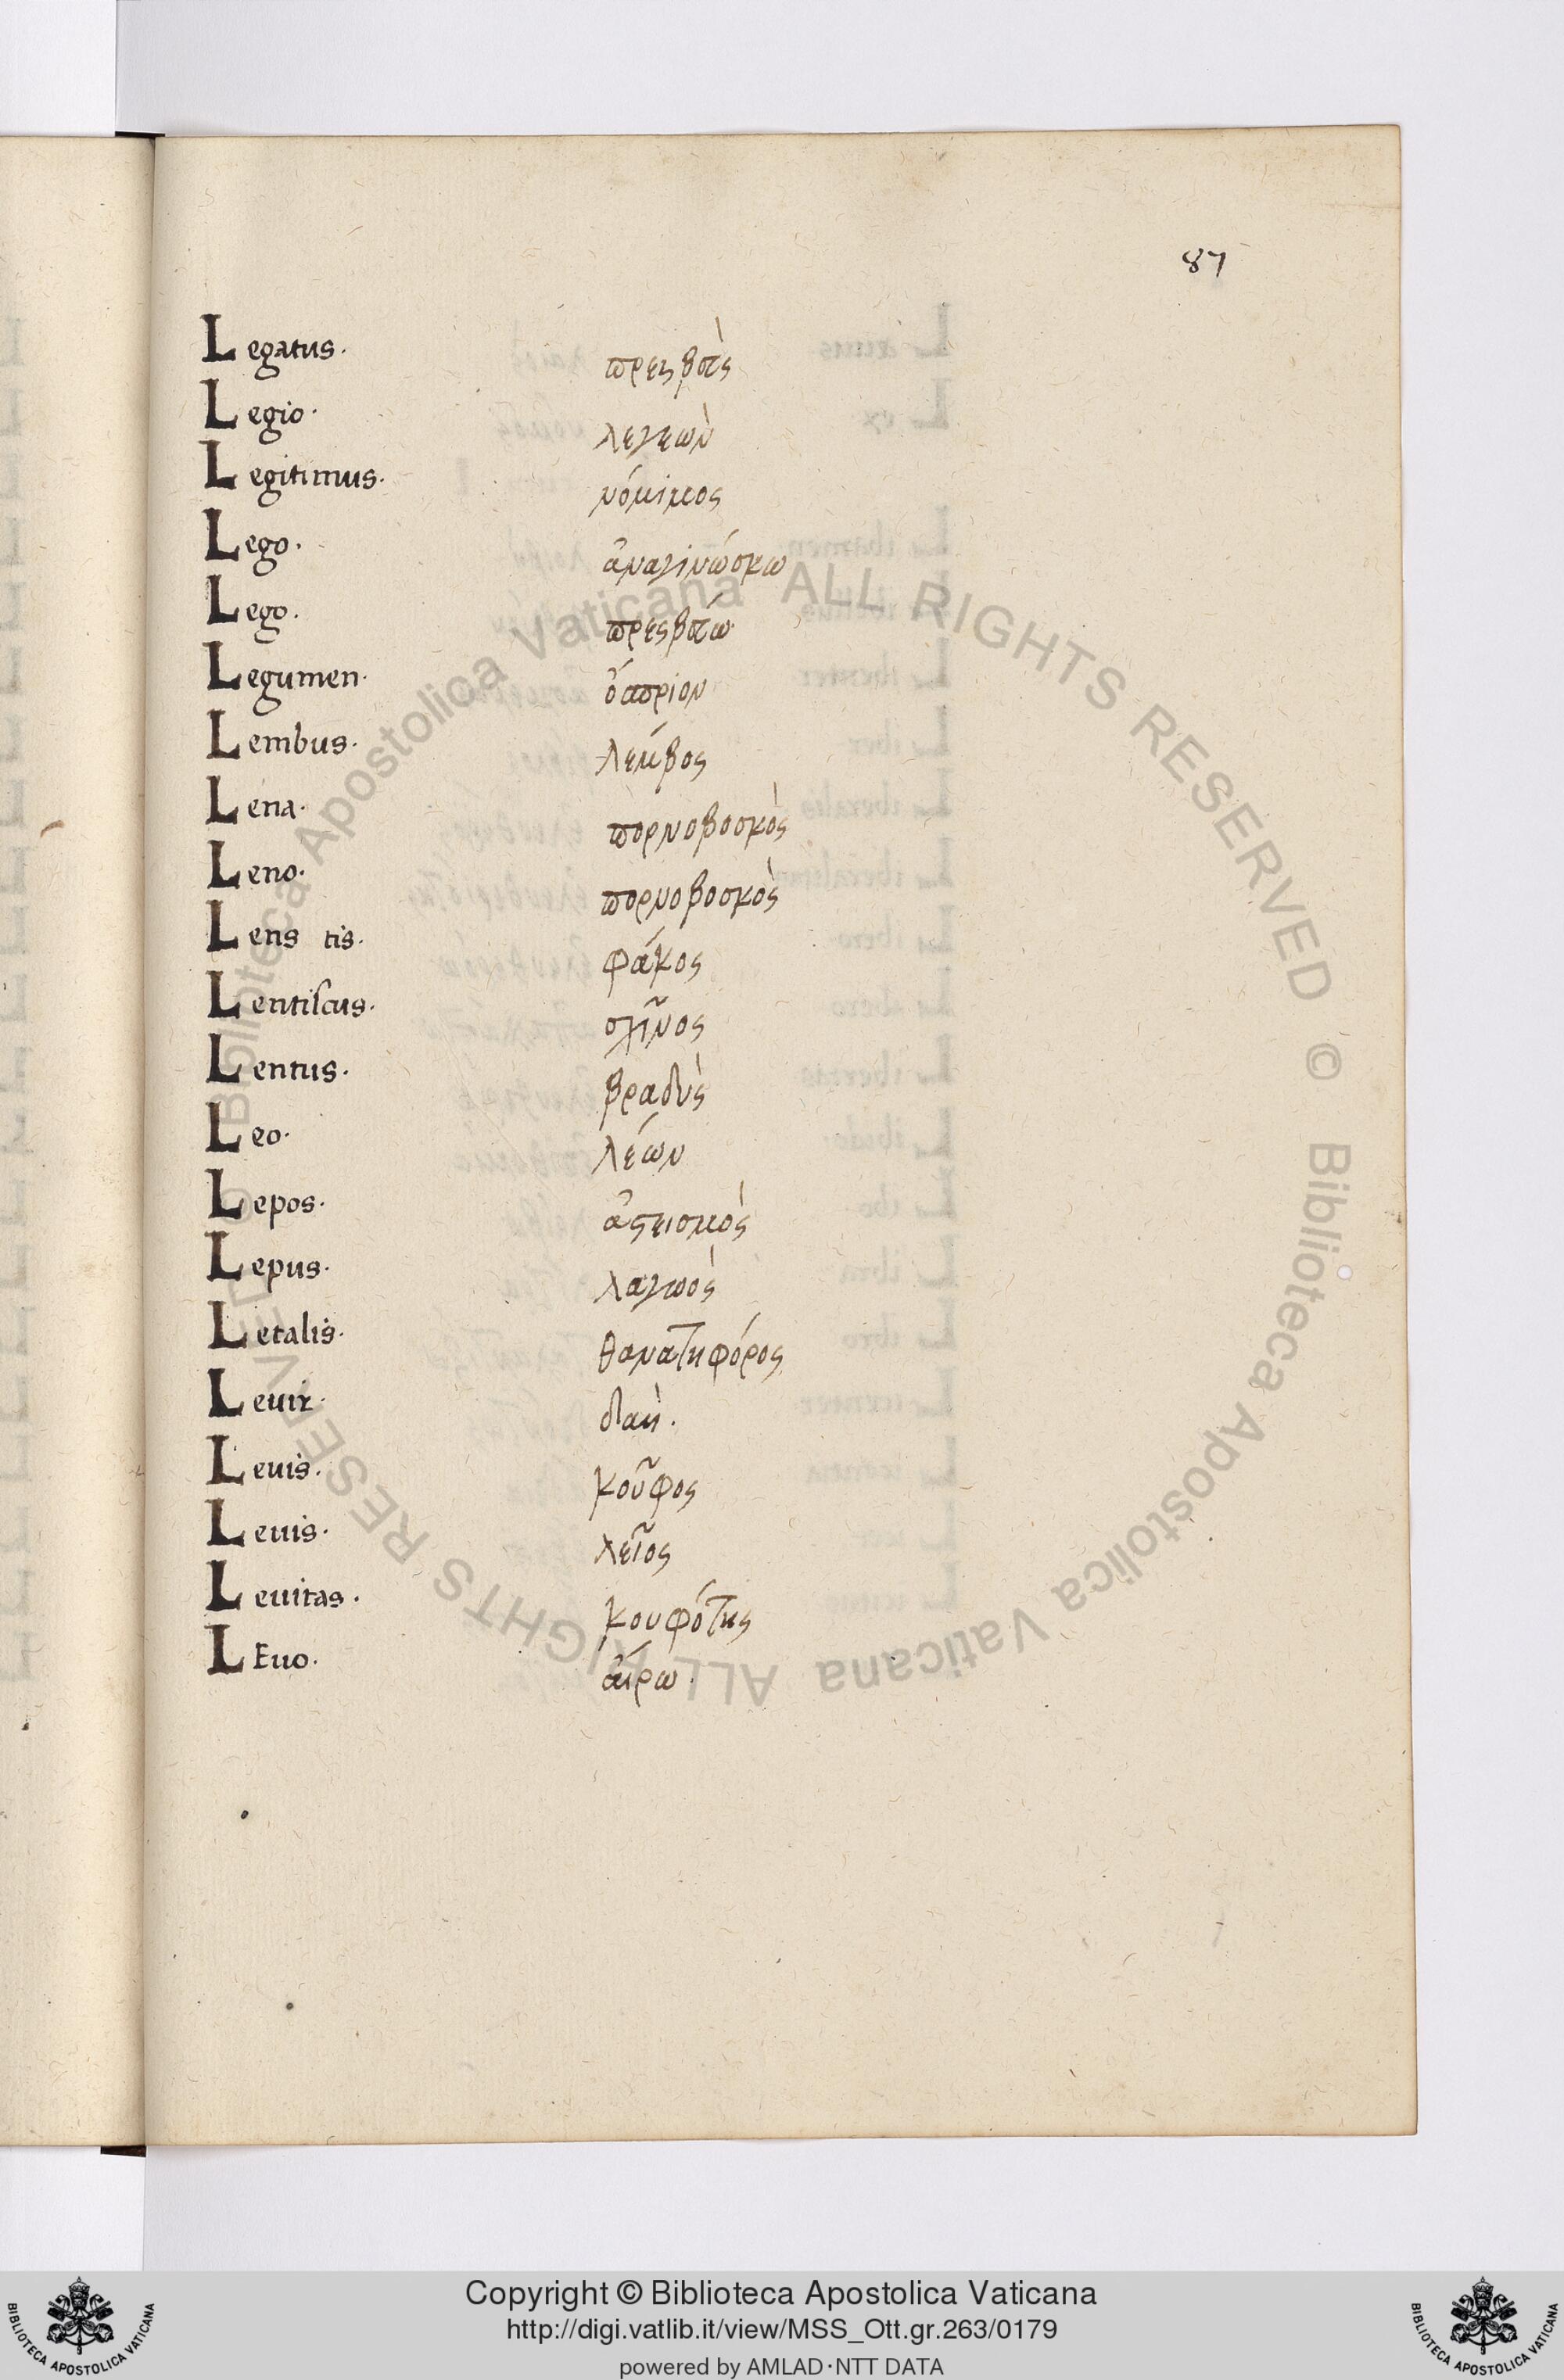 87
Legatus. πρεςβϋτὴς
Legio. λεγεὼν
Legitimus. νόμιμος
Lego. ἀναγινώσκω
Lego.
Legumen. ὄσπριον
Lembus. λέμβος
Lena. πορνοβοσκὸς
Leno. πορνοβοσκὸς
Lens tis. φάκος
Lentiscus. σχῖνος
Lentus. βραδὺς
Leo. λέων
Lepos. ἀςεισμὸς
Lepus. λαγωὸς
Letalis. θανατηφόρος
Leuir. δαὴ.
Leuis. κοῦφος
Leuis. λεῖος
Leuitas. κουφότης
LEuo. αἴρω.
© Biblioteca Apostolica Vaticana ALL RIGHTS RESERVED © Biblioteca Apostolica Vaticana ALL RIGHTS RESERVED
Copyright © Biblioteca Apostolica Vaticana
http://digi.vatlib.it/view/MSS_Ott.gr.263/0179
powered by AMLAD·NTT DATA
BIBLIOTECA APOSTOLICA VATICANA
BIBLIOTECA APOSTOLICA VATICANA